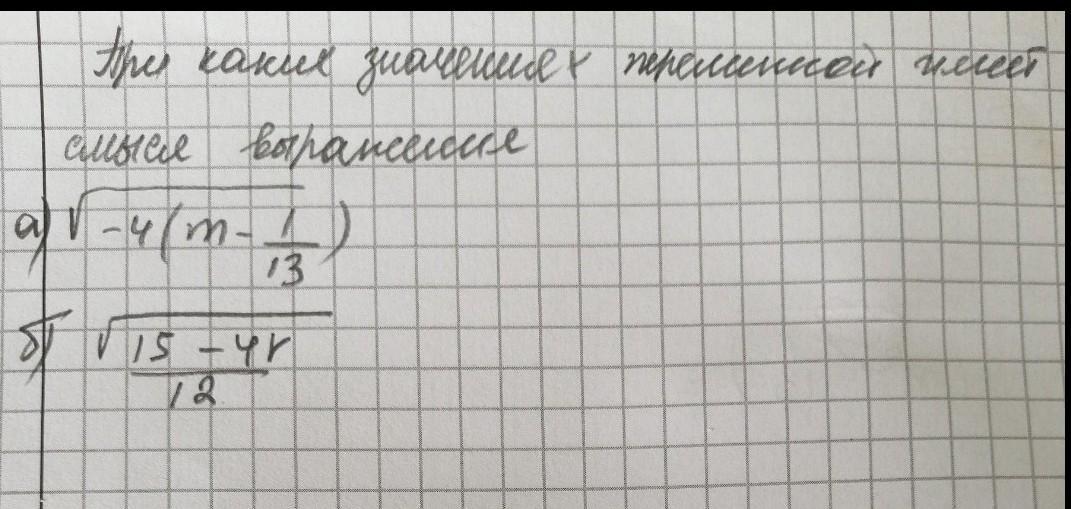 При каких значениях переменной имеет
смысл выражение
а) √-4(m - 1/13)
б) √15 - 4r/12